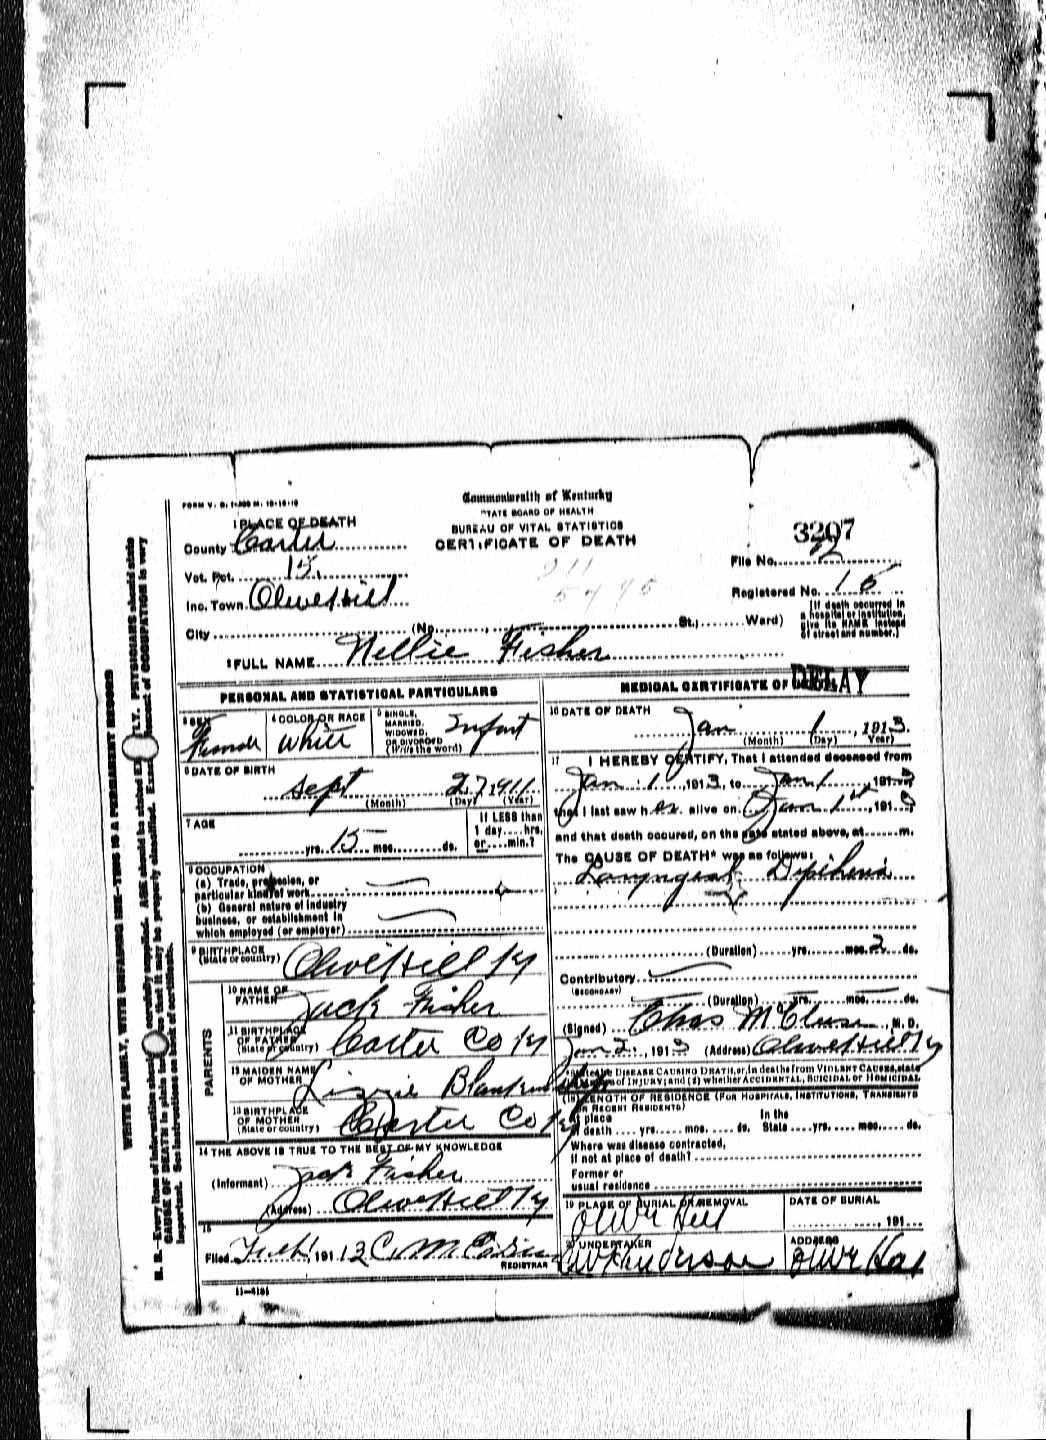 FORM V. S.
Commonwealth of Kentucky
STATE BOARD OF HEALTH
BUREAU OF VITAL STATISTICS
CERTIFICATE OF DEATH
1 PLACE OF DEATH
County Carter
Vot. Pct. 15
Inc. Town. OliveHill
City (No. St.; Ward)
3207
File No.
Registered No. 15
[If death occurred in a hospital or institution, give its NAME instead of street and number.]
2 FULL NAME Nellie Fisher
PERSONAL AND STATISTICAL PARTICULARS
3 SEX
Female
4 COLOR OR RACE
White
5 SINGLE, MARRIED, WIDOWED, OR DIVORCED (Write the word)
Infant
6 DATE OF BIRTH
Sept 27 1911
(Month) (Day) (Year)
7 AGE
yrs. 15 mos. ds.
If LESS than 1 day....hrs. or....min.?
8 OCCUPATION
(a) Trade, profession, or
particular kind of work
(b) General nature of industry
business, or establishment in
which employed (or employer)
9 BIRTHPLACE
(State or country)
OliveHill Ky
PARENTS
10 NAME OF FATHER
Jack Fisher
11 BIRTHPLACE OF FATHER
(State or country)
Carter Co Ky
12 MAIDEN NAME OF MOTHER
Lizzie
13 BIRTHPLACE OF MOTHER
(State or country)
Carter Co Ky
14 THE ABOVE IS TRUE TO THE BEST OF MY KNOWLEDGE
(Informant) Jack Fisher
(Address) OliveHill Ky
15
Filed 191
REGISTRAR
11—4151
MEDICAL CERTIFICATE OF
DELAY
16 DATE OF DEATH
Jan 1, 1913
(Month) (Day) Year)
17 I HEREBY CERTIFY, That I attended deceased from
Jan 1, 1913, to Jan 1, 1913
that I last saw her alive on Jan 1st, 1913
and that death occured, on the date stated above, at m.
The CAUSE OF DEATH* was as follows:
Laryngeal Diptheria
(Duration) yrs. mos. 2 ds.
Contributory
(SECONDARY)
(Duration) yrs. mos. ds.
(Signed) Chas M. D.
Jan 2, 1913 (Address) OliveHill Ky
*State the DISEASE CAUSING DEATH, or, in deaths from VIOLENT CAUSES, state
of INJURY; and (2) whether ACCIDENTAL, SUICIDAL or HOMICIDAL
18 LENGTH OF RESIDENCE (FOR HOSPITALS, INSTITUTIONS, TRANSIENTS
OR RECENT RESIDENTS)
At place In the
of death yrs. mos. ds. State yrs. mos. ds.
Where was disease contracted,
if not at place of death?
Former or
usual residence
19 PLACE OF BURIAL OR REMOVAL
Olive Hill
DATE OF BURIAL
, 191
20 UNDERTAKER
Henderson
ADDRESS
Olive Hill
N. B.—Every item of information should be carefully supplied. AGE should be stated EXACTLY. PHYSICIANS should state
CAUSE OF DEATH in plain terms so that it may be properly classified. Exact statement of OCCUPATION is very
important. See instructions on back of certificate.
WRITE PLAINLY, WITH UNFADING INK—THIS IS A PERMANENT RECORD